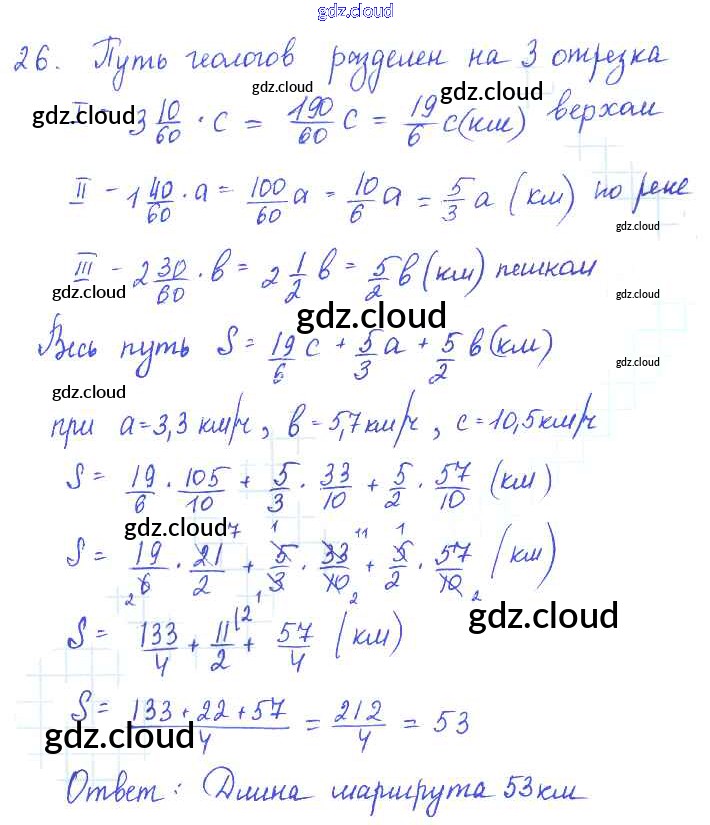 gdz.cloud
gdz.cloud
26. Путь геологов разделен на 3 отрезка
gdz.cloud gdz.cloud gdz.cloud
3 10/60 · c = 190/60 c = 19/6 c (км) верхом
II - 1 40/60 · a = 100/60 a = 10/6 a = 5/3 a (км) по реке
gdz.cloud
III - 2 30/60 · в = 2 1/2 в = 5/2 в (км) пешком
gdz.cloud gdz.cloud
gdz.cloud
Весь путь S = 19/6 c + 5/3 a + 5/2 в (км)
gdz.cloud
gdz.cloud
при a = 3,3 км/ч, в = 5,7 км/ч, c = 10,5 км/ч
S = 19/6 · 105/10 + 5/3 · 33/10 + 5/2 · 57/10 (км)
gdz.cloud
7 1 11 1
S = 19/6 · 21/2 + 5/3 · 33/10 + 5/2 · 57/10 (км)
2 1 2 2
gdz.cloud
S = 133/4 + 11/2 (2 + 57/4 (км)
S = 133+22+57/4 = 212/4 = 53
gdz.cloud
Ответ: Длина маршрута 53 км
gdz.cloud